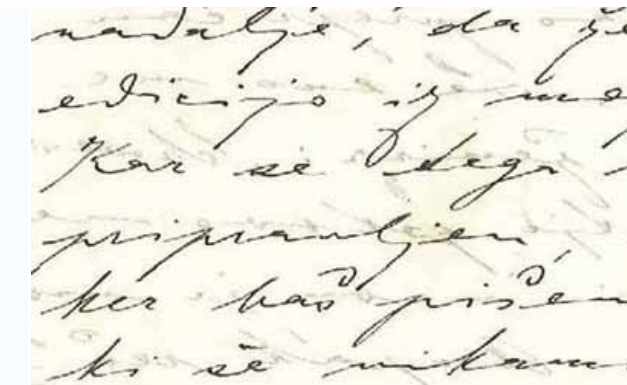 nadalje, da že
edicijo iz me
Kar se tega
pripravljen,
ker baš pišem
ki še nikam